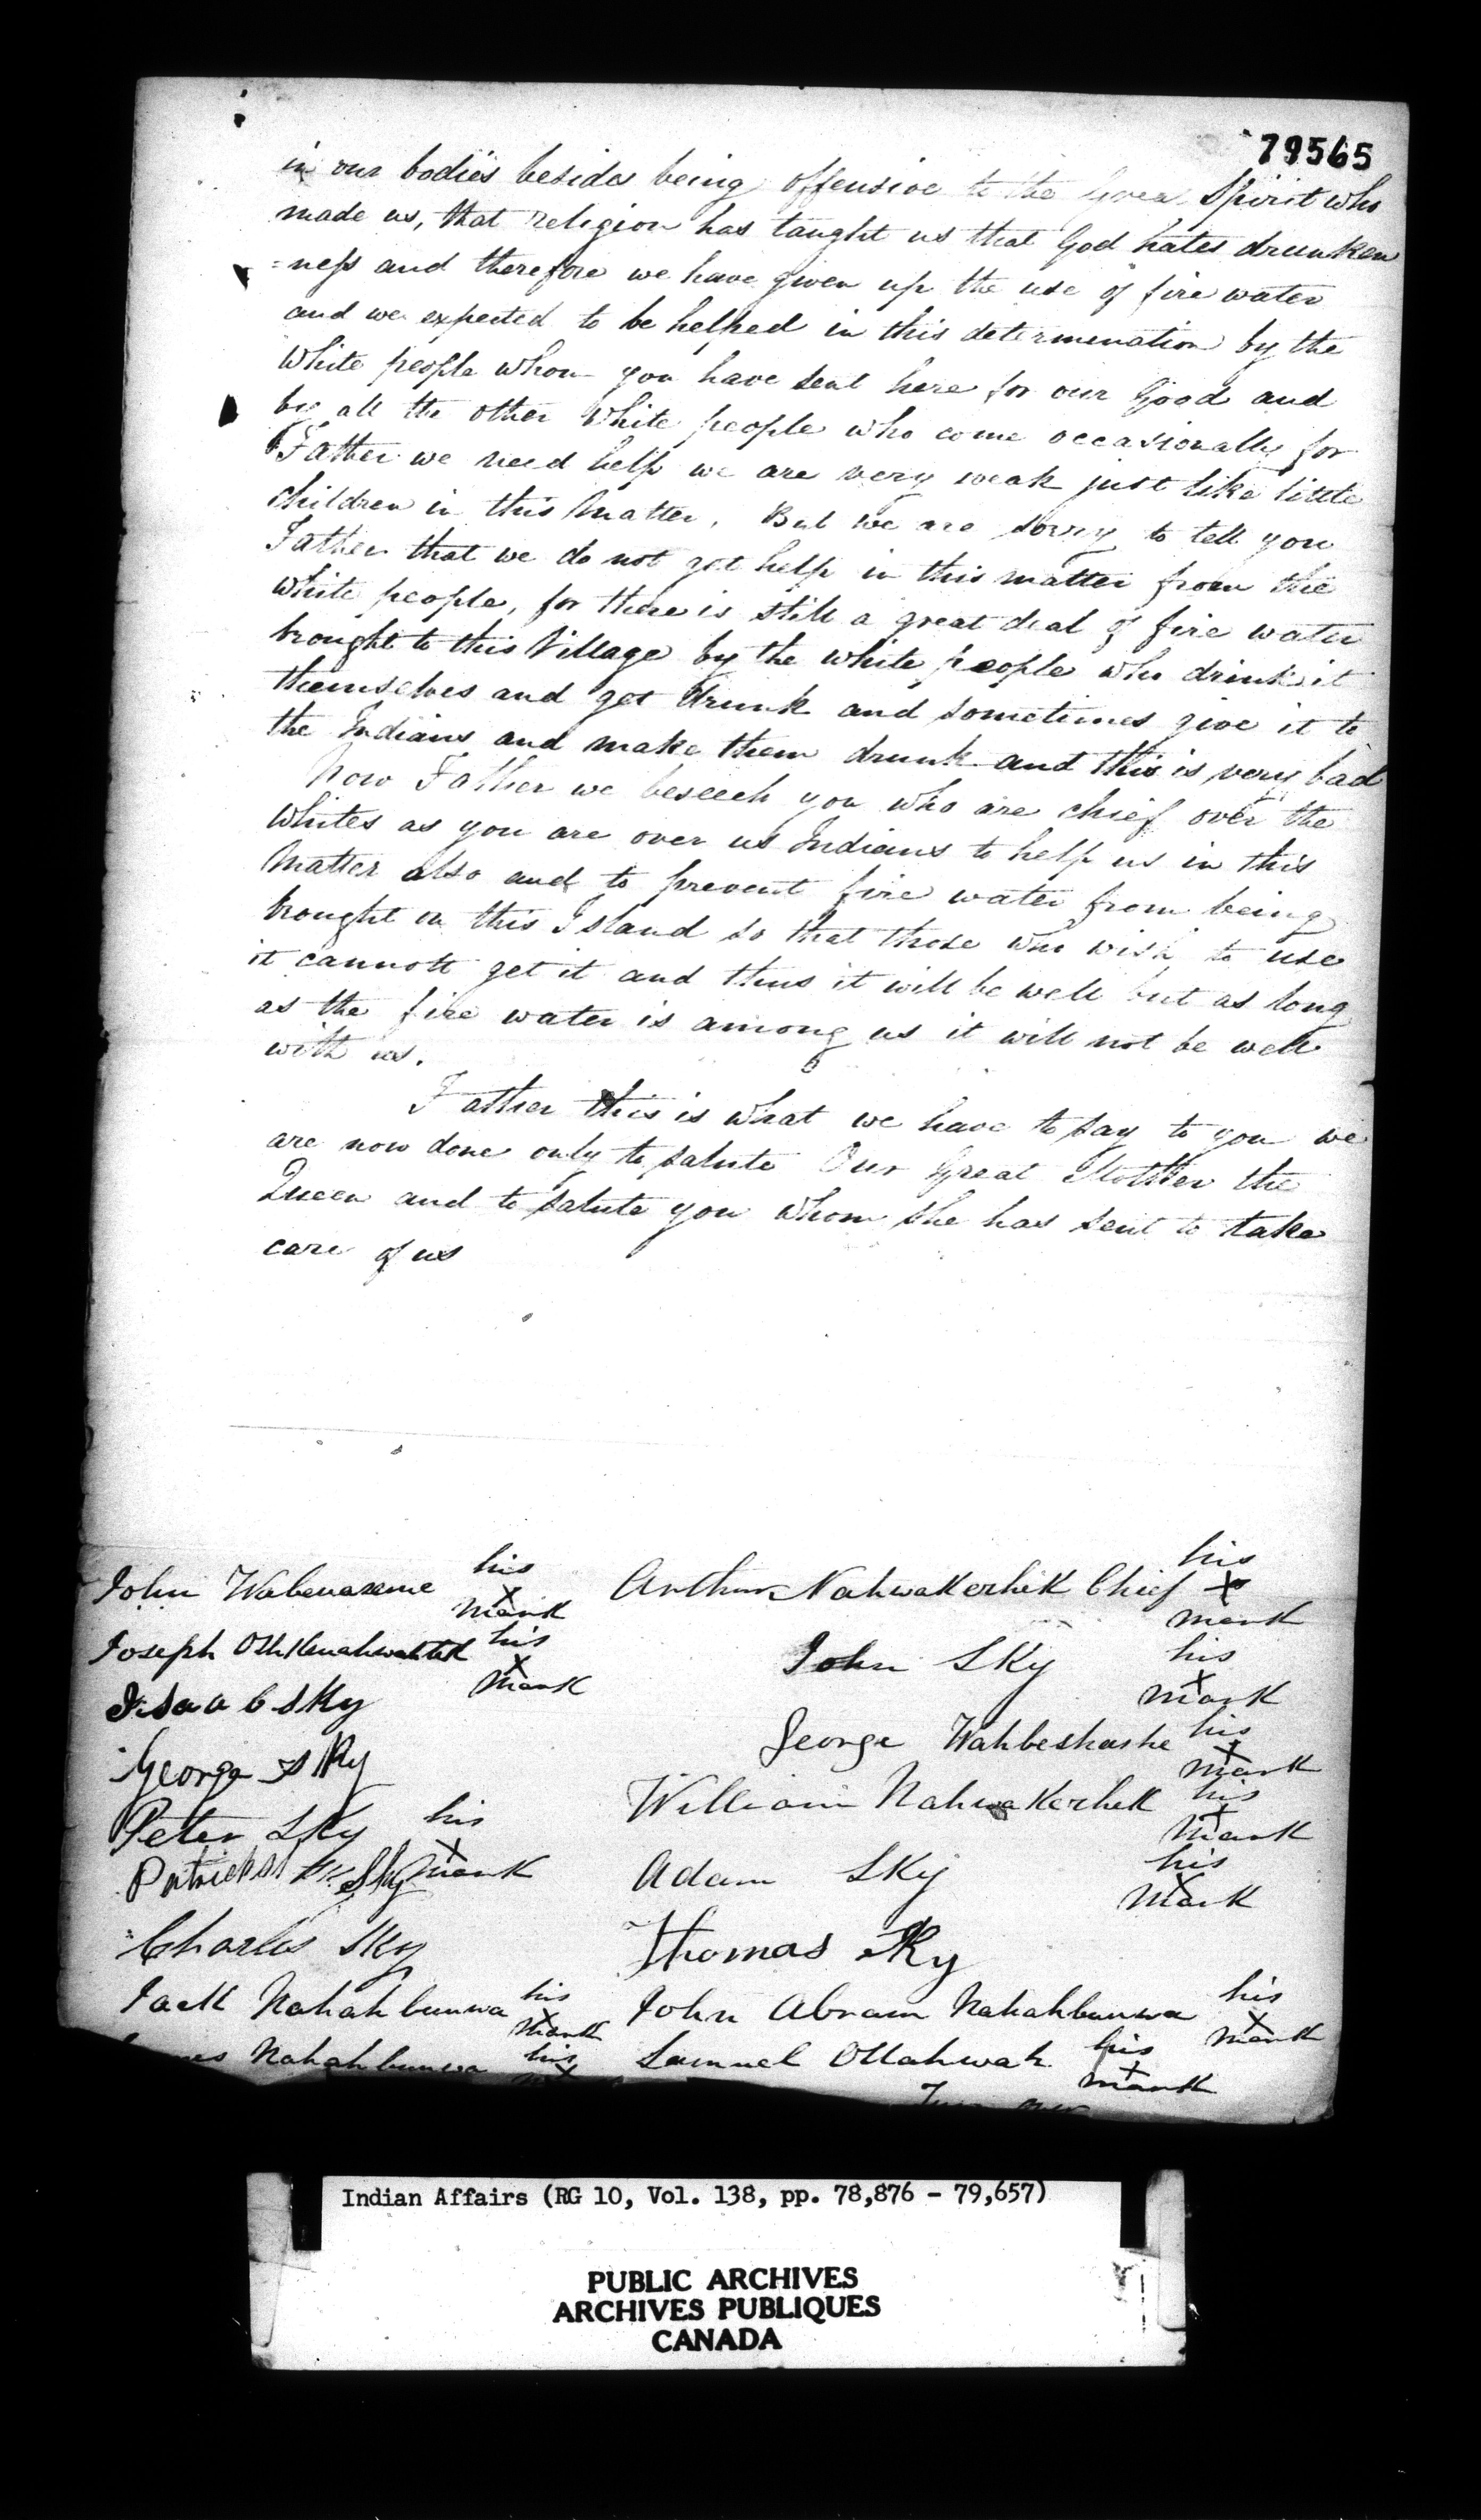 79565
in our bodies besides being offensive to the Great Spirit who
made us, that religion has taught us that God hates drunken
=ness and therefore we have given up the use of fire water
and we expected to be helped in this determenation by the
White people whom you have sent here for our Good and
by all the other White people who come occasionally for
Father we need help we are very weak just like little
children in this Matter. But we are sorry to tell you
Father that we do not get help in this matter from the
White people, for there is still a great deal of fire water
brought to this Village by the white people who drink it
themselves and get drunk and sometimes give it to
the Indians and make them drunk and this is very bad
Now Father we beseech you who are chief over the
Whites as you are over us Indians to help us in this
Matter also and to prevent fire water from being
brought on this Island so that those who wish to use
it cannott get it and thus it will be well but as long
as the fire water is among us it will not be well
with us.
Father this is what we have to say to you we
are now done only to salute Our Great Mother the
Queen and to salute you whom she has sent to take
care of us
John his X mark
Arthur Nahwakezhik Chief his X mark
Joseph his X mark
John Sky his X mark
Isaac Sky
George Wahbeshashe his X mark
George Sky
William Nahwakezhik his X mark
Peter Sky his X mark
Adam Sky his X mark
Patrick Sky
Charles Sky
Thomas Sky
Jack Nahahbunwa his X mark
John Abram Nahahbunwa his X mark
Nahahbunwa his X
Samuel Ottahwah his X mark
Indian Affairs (RG 10, Vol. 138, pp. 78,876 - 79,657)
PUBLIC ARCHIVES
ARCHIVES PUBLIQUES
CANADA